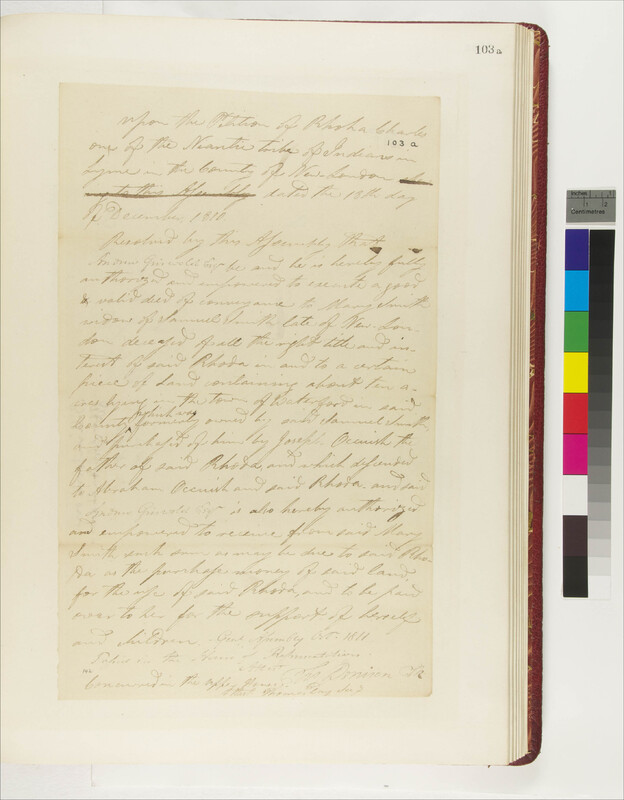 103a
Upon the Petition of Rhoda Charles
one of the Niantic tribe of Indians in
103 a
Lyme in the County of New London
to this Assembly dated the 13th day
of December 1810.
Resolved by this Assembly that
Griswold Esqr be and he is hereby fully
authorized and empowered to execute a good
& valid deed of conveyance to Mary Smith
widow of Samuel Smith late of New Lon-
don deceased of all the right title and in-
terest of said Rhoda in and to a certain
piece of Land containing about ten a-
cres lying in the town of Waterford in said
which was
County formerly owned by said Samuel Smith
and purchased of him by Joseph Occuish the
father of said Rhoda, and which descended
to Abraham Occuish and said Rhoda and said
Griswold Esqr is also hereby authorized
and empowered to receive from said Mary
Smith such sum as may be due to said Rho-
da as the purchase money of said land
for the use of said Rhoda, and to be paid
over to her for the support of herself
and children. Genl Assembly Oct. 1811
Passed in the House of Representatives
Attest
Concurred in the upper House
Attest Thomas Day Secy
inches 1 2
Centimetres